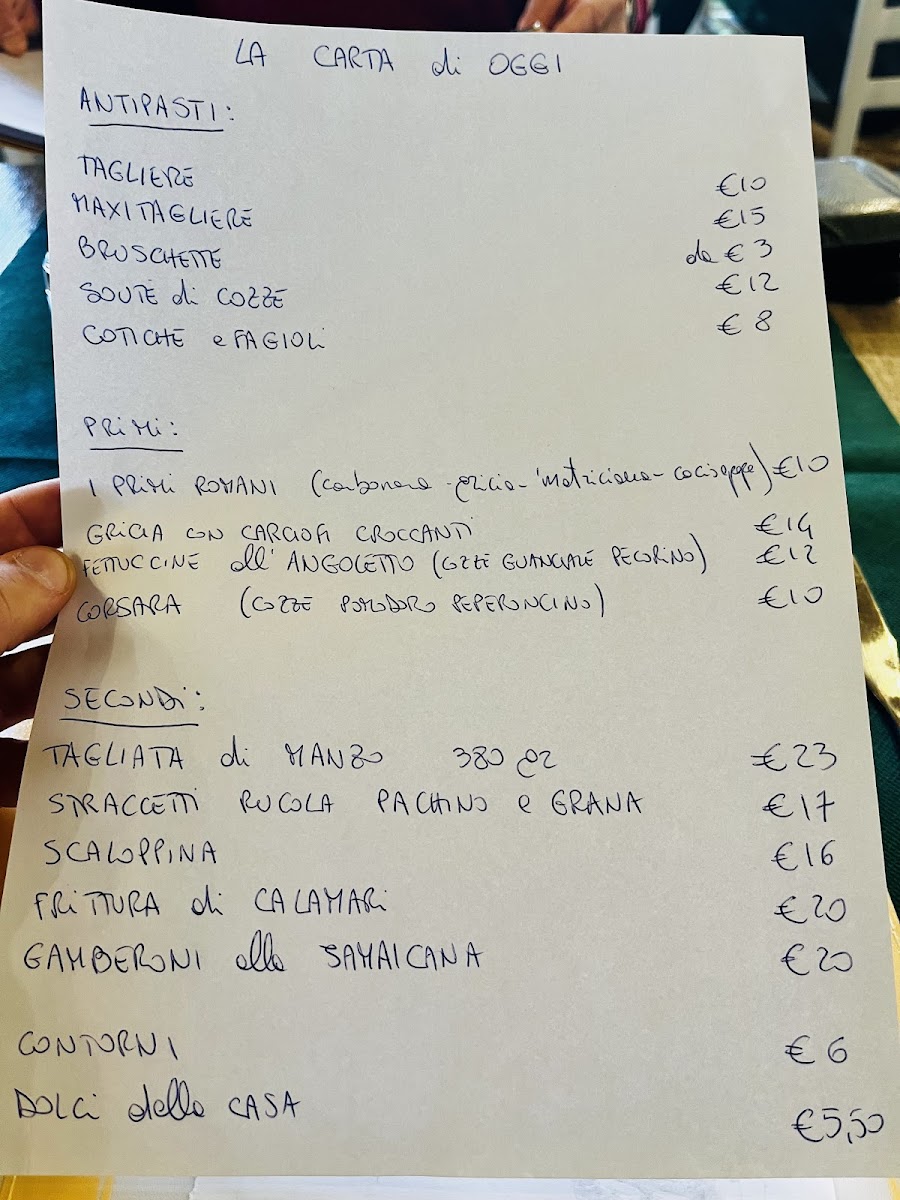 LA CARTA di OGGI
ANTIPASTI:
TAGLIERE €10
MAXITAGLIERE €15
BRUSCHETTE da € 3
SOUTÈ di COZZE €12
COTICHE e FAGIOLI € 8
PRIMI:
I PRIMI ROMANI (carbonara - gricia - 'matriciana - caciopepe) €10
GRICIA CON CARCIOFI CROCCANTI €14
FETTUCCINE all'ANGOLETTO (COZZE GUANCIALE PECORINO) €12
CORSARA (COZZE POMODORO PEPERONCINO) €10
SECONDI:
TAGLIATA di MANZO 380 gr €23
STRACCETTI RUCOLA PACHINO e GRANA €17
SCALOPPINA €16
FRITTURA di CALAMARI €20
GAMBERONI alla JAMAICANA €20
CONTORNI € 6
DOLCI della CASA €5,50